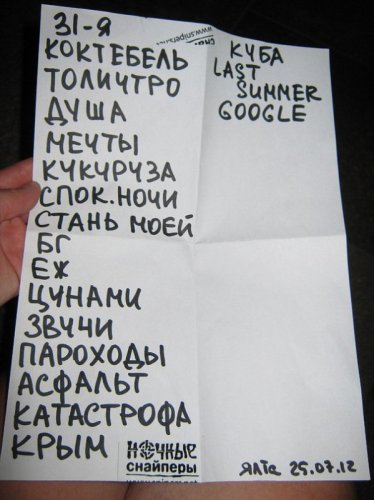 31-Я
КОКТЕБЕЛЬ
ТОЛИЧТРО
ДУША
МЕЧТЫ
КУКУРУЗА
СПОК.НОЧИ
СТАНЬ МОЕЙ
БГ
ЕЖ
ЦУНАМИ
ЗВУЧИ
ПАРОХОДЫ
АСФАЛЬТ
КАТАСТРОФА
КРЫМ
КУБА
LAST
SUMMER
GOOGLE
НОЧНЫЕ
СНАЙПЕРЫ
ЯЛТА 25.07.12